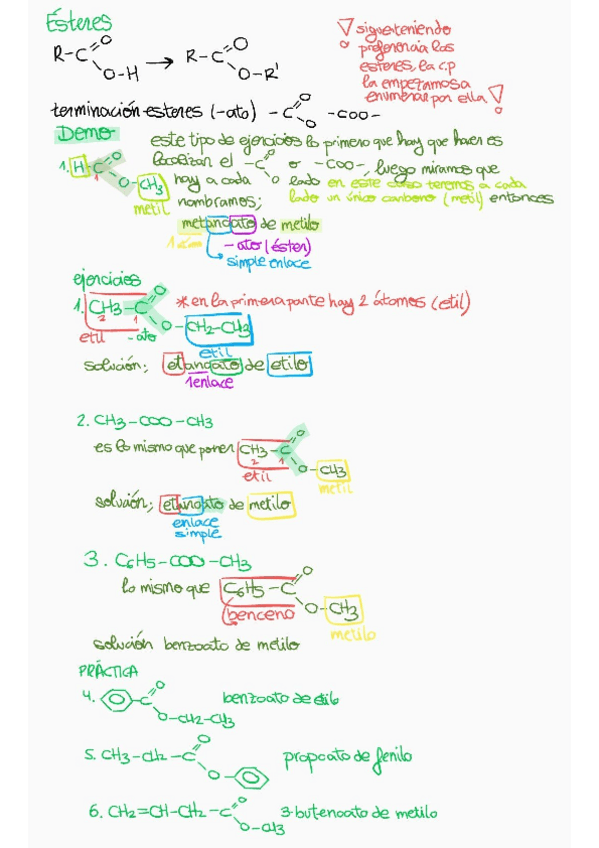 Ésteres
R-C=O O-H → R-C=O O-R'
sigue teniendo
preferencia los
esteres, la c.p
la empezamos a
enumerar por ella
terminación esteres (-ato) -C=O O- -COO-
Demo
este tipo de ejercicios lo primero que hay que hacer es
localizar el -C=O O o -COO-, luego miramos que
1. H-C=O O-CH3
1
metil
hay a cada lado en este caso tenemos a cada
nombramos; lado un único carbono (metil) entonces
metanoato de metilo
-ato (éster)
simple enlace
ejercicios
1. CH3-C=O O-CH2-CH3
2 1
*en la primera parte hay 2 átomos (etil)
etil -ato
etil
solución; etanoato de etilo
1enlace
2. CH3-COO-CH3
es lo mismo que poner CH3-C=O O-CH3
2 1
etil
metil
solución; etanoato de metilo
enlace
simple
3. C6H5-COO-CH3
lo mismo que C6H5-C=O O-CH3
benceno
metilo
solución benzoato de metilo
PRÁCTICA
4. -C=O O-CH2-CH3 benzoato de etilo
5. CH3-CH2-C=O O- propoato de fenilo
6. CH2=CH-CH2-C=O O-CH3 3-butenoato de metilo